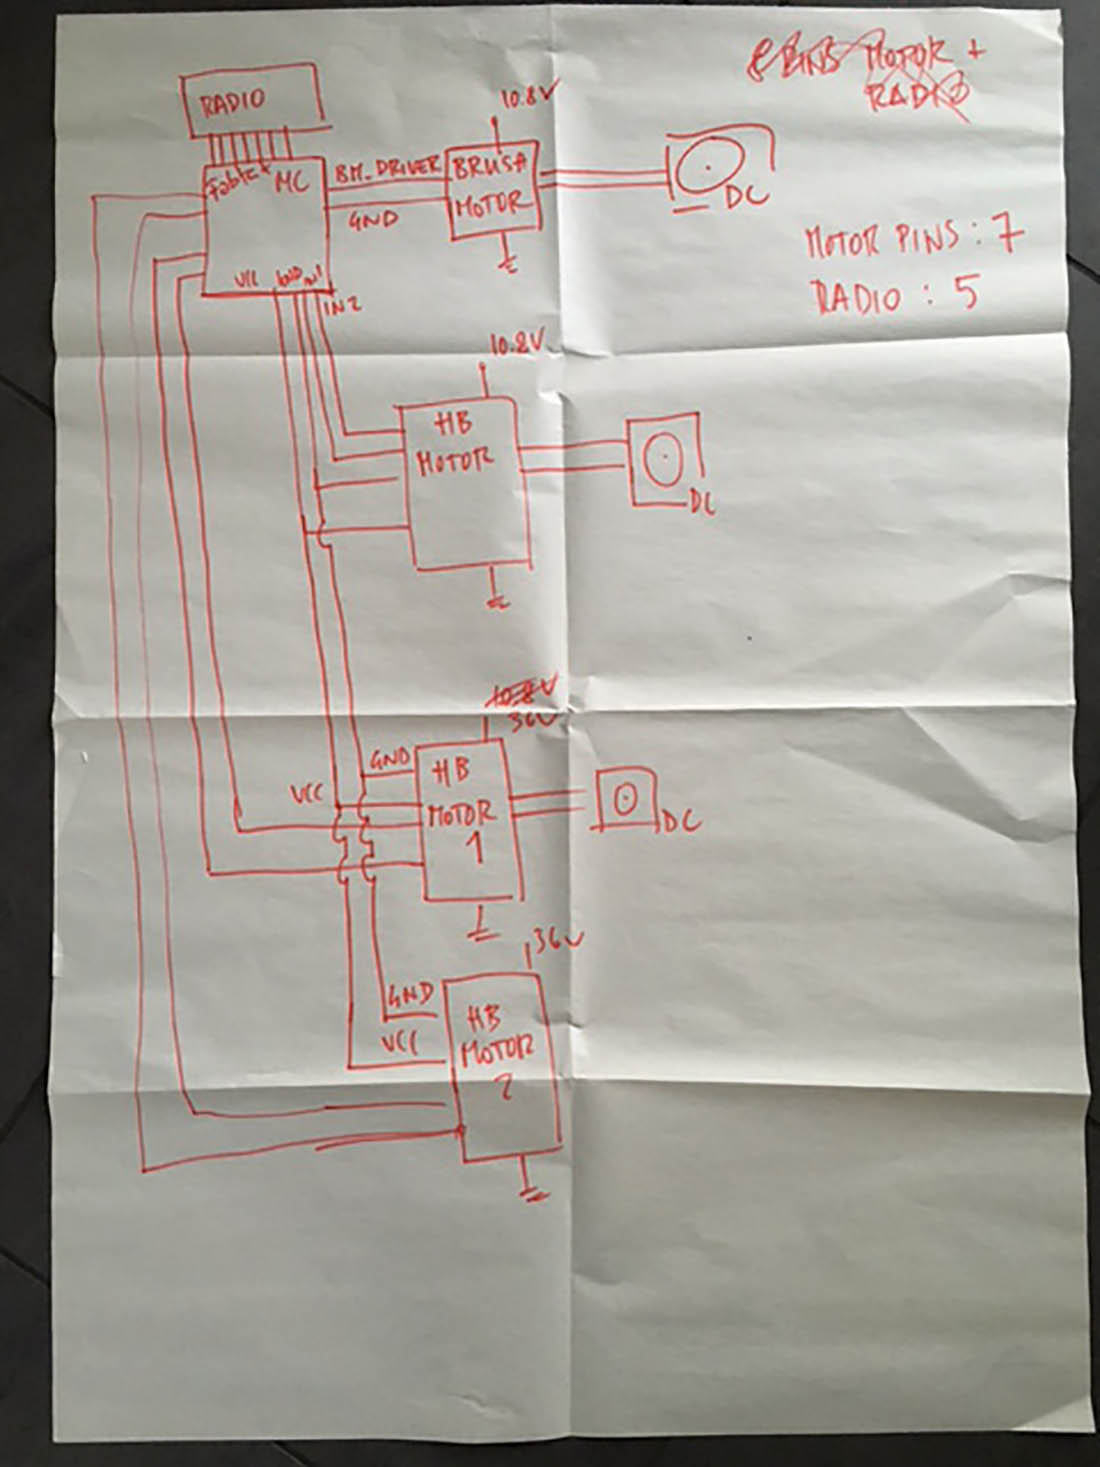 MOTOR +
RADIO
RADIO
10.8V
MC
BM_DRIVER
BRUSH
MOTOR
GND
DC
MOTOR PINS : 7
RADIO : 5
VCC GND IN1
IN2
10.8V
HB
MOTOR
DC
10.8V
36V
GND
HB
MOTOR
1
VCC
DC
36V
GND
HB
MOTOR
2
VCC